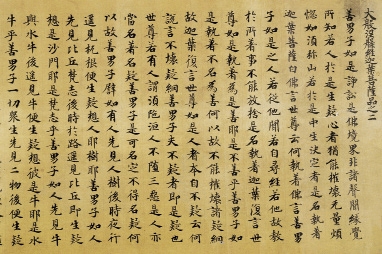 大般涅槃經迦葉菩薩品之二
善男子如是諍訟是佛境界非諸聲聞緣覺
所知若人於是生疑心者猶能摧壞無量煩
惱如須弥山若於是中生決定者是名執著
迦葉菩薩白佛言世尊云何執著佛言善男
子如是之人若從他聞若自尋經若他故教
於所著事不能放捨是名執著迦葉復言世
尊如是執著為是善耶是不善乎善男子如
是執著不名為善何以故不能摧壞諸疑網
故迦葉復言世尊如是人者本自不疑云何
說言不壞疑網善男子夫不疑者即是疑也
世尊若有人謂須陀洹人不墮三惡是人亦
當名著名疑善男子是可名定不得名疑何
以故善男子譬如有人先見人樹後時夜行
遙見杌根便生疑想人耶樹耶善男子如人
先見比丘梵志後時於路遙見比丘即生疑
想是沙門耶是梵志乎善男子如人先見牛
與水牛後遙見牛便生疑想彼是牛耶是水
牛乎善男子一切眾生先見二物後便生疑